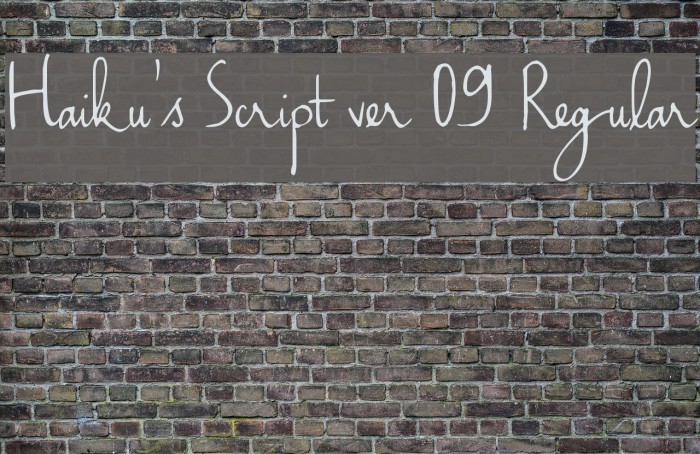 Haiku's Script ver 09 Regular